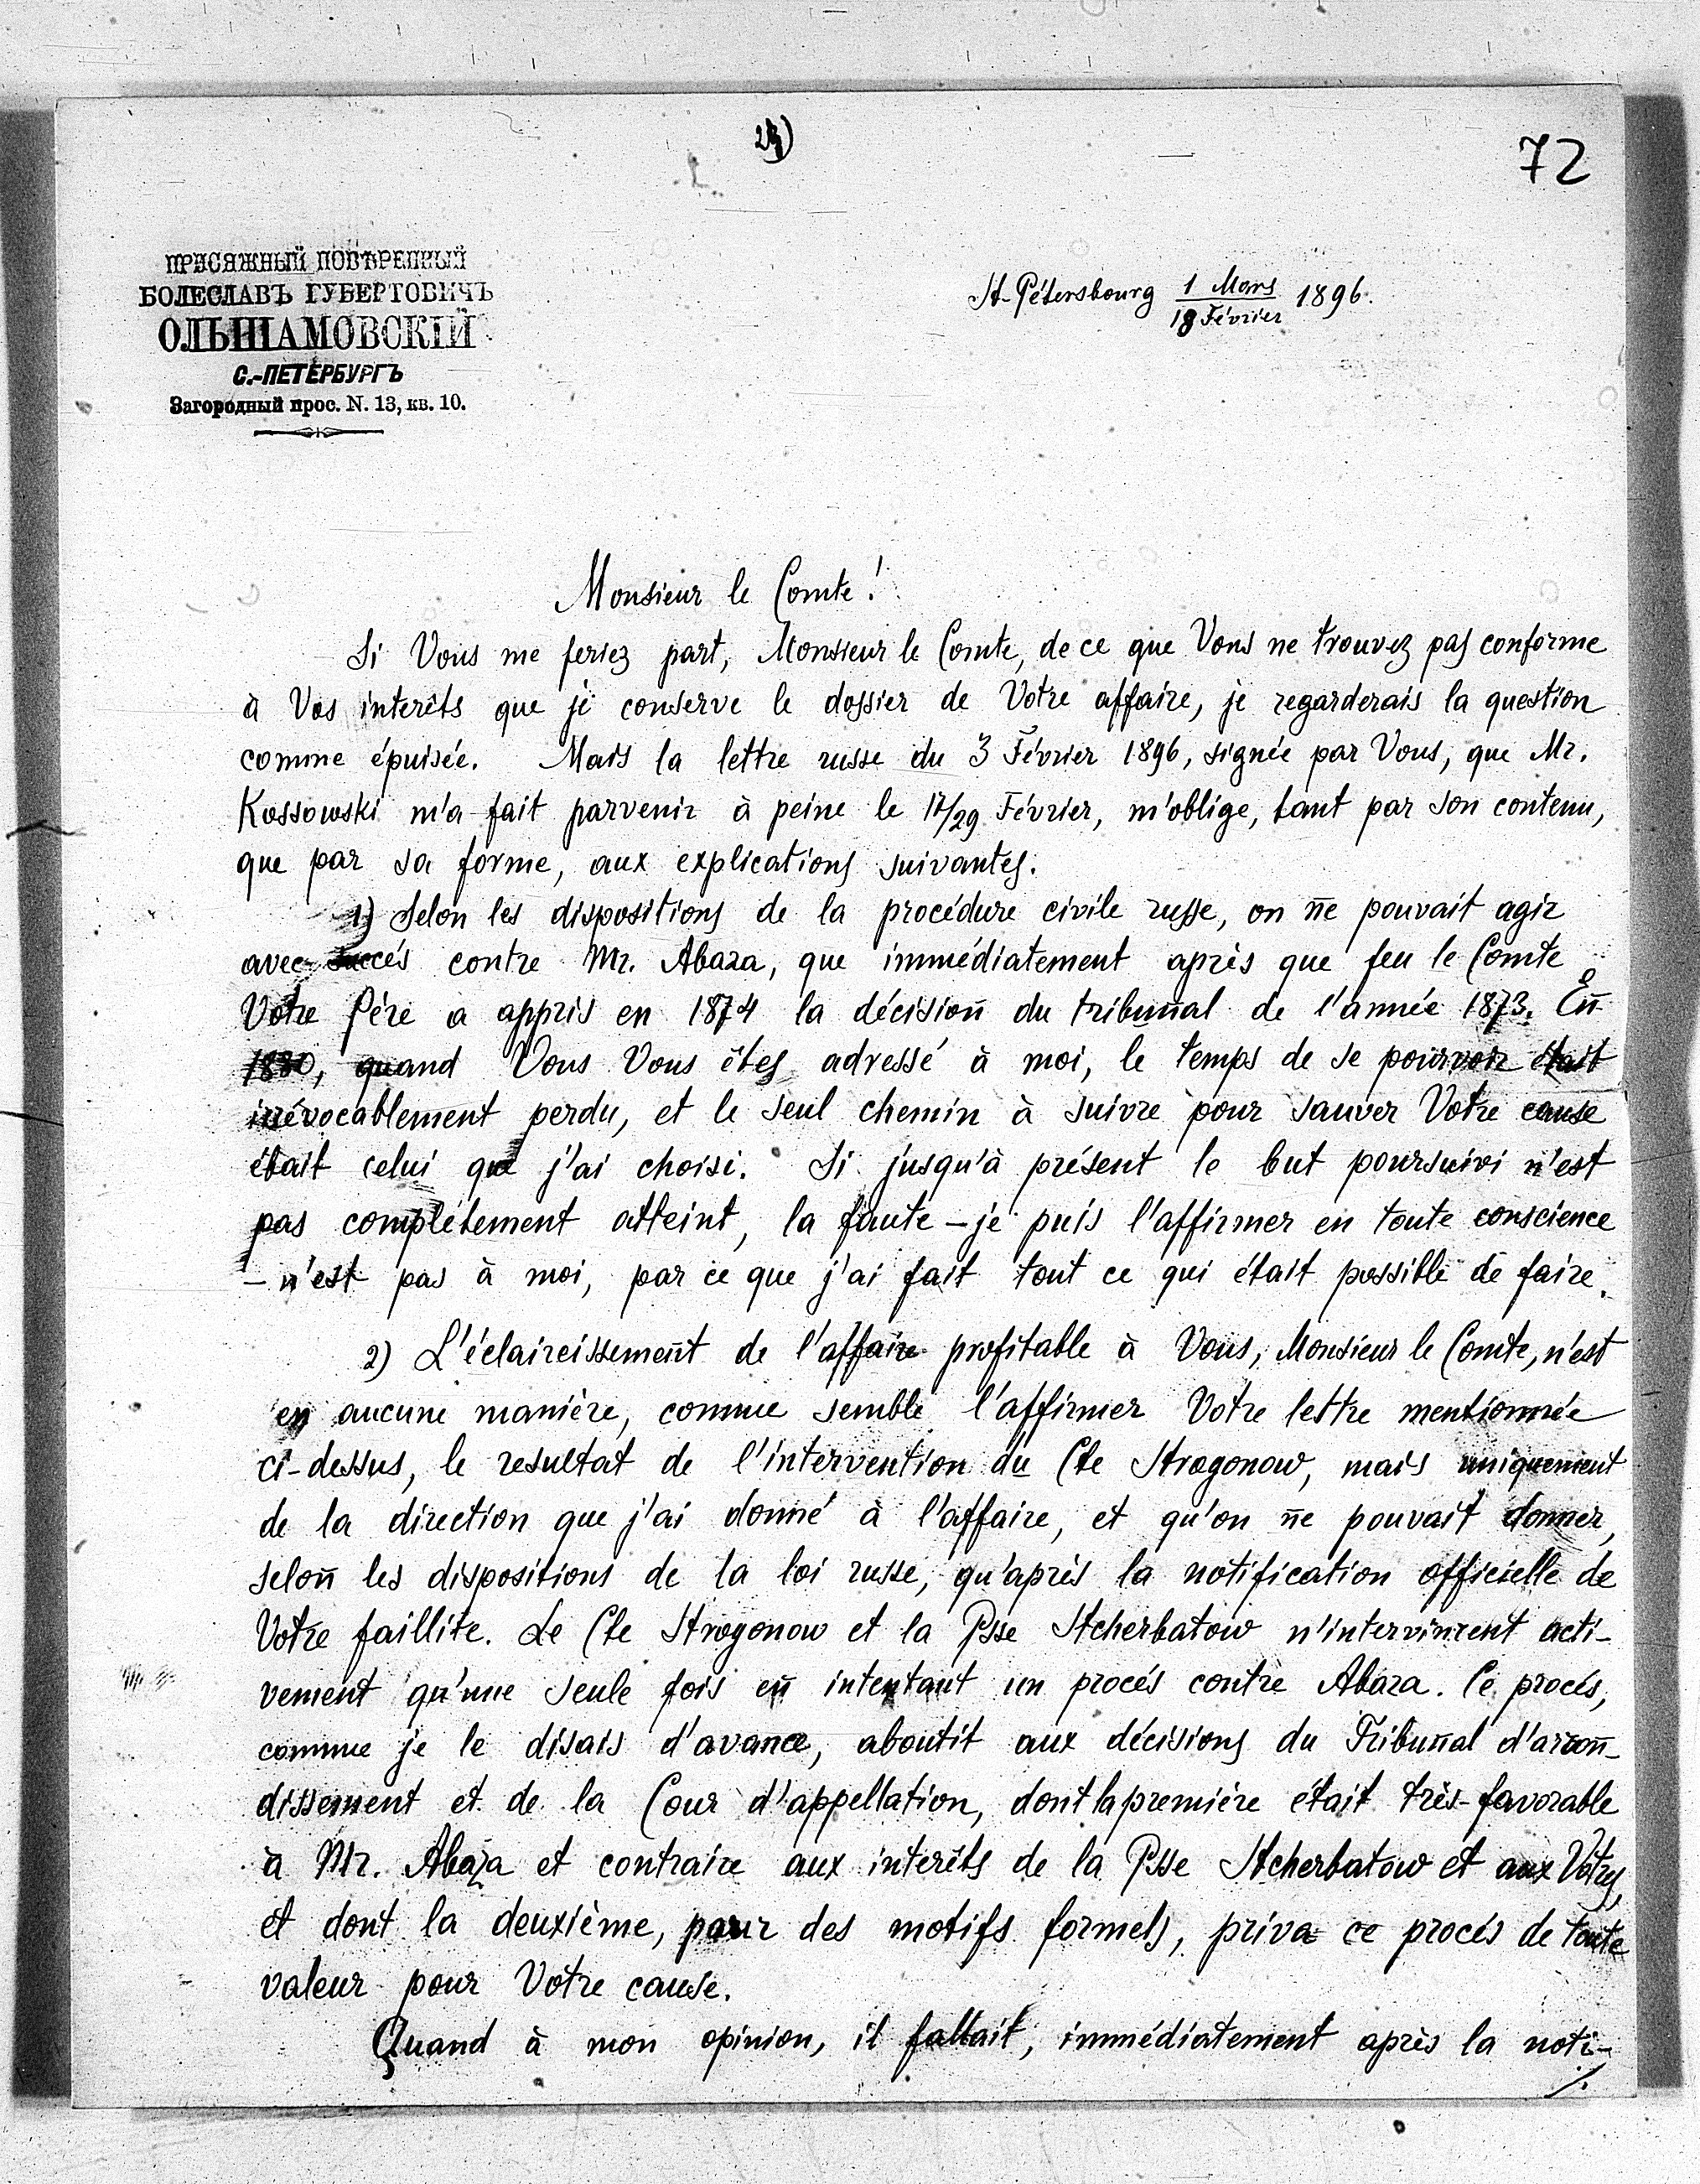 72
ПРИСЯЖНЫЙ ПОВѢРЕННЫЙ
БОЛЕСЛАВЪ ГУБЕРТОВИЧЪ
ОЛЬШАМОВСКІЙ
С.-ПЕТЕРБУРГЪ
Загородный прос. N. 13, кв. 10.
St-Pétersbourg 1 Mars / 18 Février 1896.
Monsieur le Comte!
Si Vous me feriez part, Monsieur le Comte, de ce que Vous ne trouvez pas conforme
à Vos interêts que je conserve le dossier de Votre affaire, je regarderais la question
comme épuisée. Mais la lettre russe du 3 Février 1896, signée par Vous, que Mr.
Kossowski m'a fait parvenir à peine le 17/29 Février, m'oblige, tant par son contenu,
que par sa forme, aux explications suivantes.
1) Selon les dispositions de la procédure civile russe, on ne pouvait agir
avec succés contre Mr. Abaza, que immédiatement après que feu le Comte
Votre Père a appris en 1874 la décision du tribunal de l'année 1873. En
1880, quand Vous Vous êtes adressé à moi, le temps de se pourvoir était
irrévocablement perdu, et le seul chemin à suivre pour sauver Votre cause
était celui que j'ai choisi. Si jusqu'à présent le but poursuivi n'est
pas complétement atteint, la faute – je puis l'affirmer en toute conscience
– n'est pas à moi, par ce que j'ai fait tout ce qui était possible de faire.
2) L'éclaircissement de l'affaire profitable à Vous, Monsieur le Comte, n'est
en aucune manière, comme semble l'affirmer Votre lettre mentionnée
ci-dessus, le resultat de l'intervention du Cte Strogonow, mais uniquement
de la direction que j'ai donné à l'affaire, et qu'on ne pouvait donner,
selon les dispositions de la loi russe, qu'après la notification officielle de
Votre faillite. Le Cte Strogonow et la Psse Stcherbatow n'intervinrent acti-
vement qu'une seule fois en intentant un procés contre Abaza. Ce procés,
comme je le disais d'avance, aboutit aux décisions du Tribunal d'arron-
dissement et de la Cour d'appellation, dont la première était très-favorable
à Mr. Abaza et contraire aux interêts de la Psse Stcherbatow et aux Votres,
et dont la deuxième, pour des motifs formels, priva ce procés de toute
valeur pour Votre cause.
Quand à mon opinion, il fallait, immédiatement après la noti-
/.